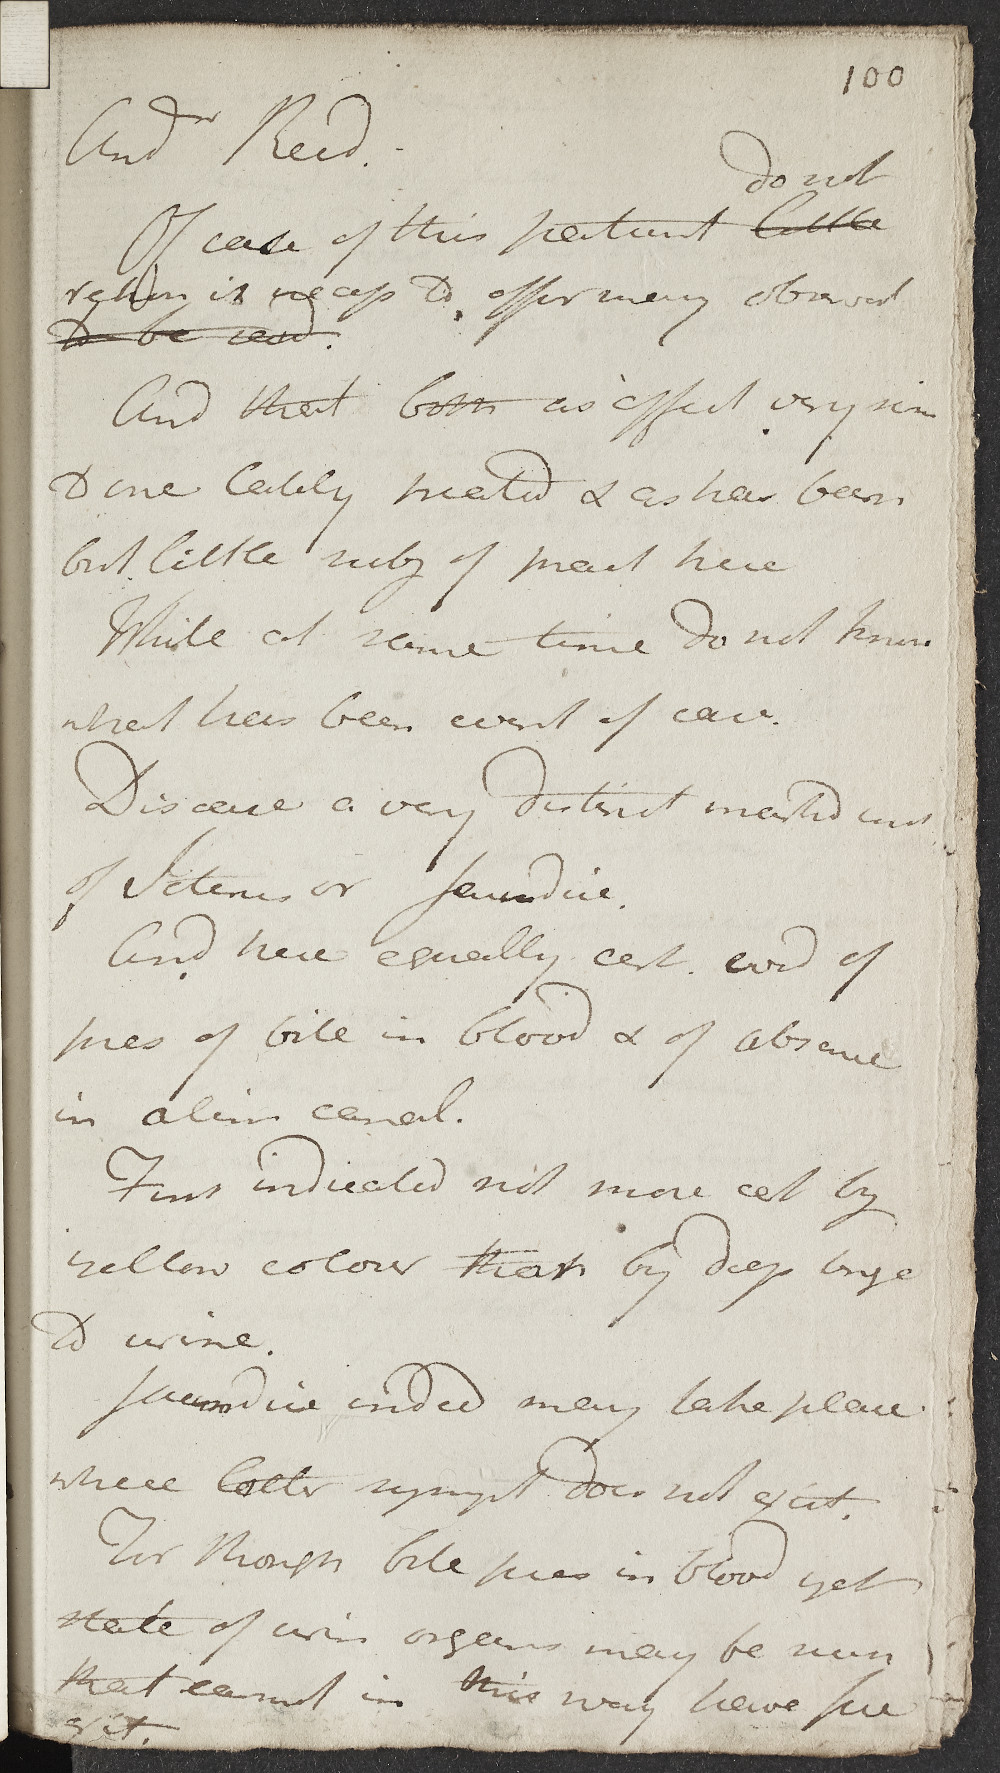 100
Andr Reed.
do not
Of case of this patient little
reckon it necess to offer many observat
to be read.
And that both as affect very sim
to one lately treated & as has been
but little subj of pract here
While at same time do not know
what has been event of case.
Disease a very distinct marked inst
of Icterus or Jaundice.
And here equally cert. evid of
pres of bile in blood & of absence
in alim canal.
First indicated not more cert by
yellow colour than by deep tinge
to urine.
Jaundice indeed may take place
where latter sympt does not exist.
For though bile pres in blood yet
state of urin organs may be such
that cannot in this way have free
exit.